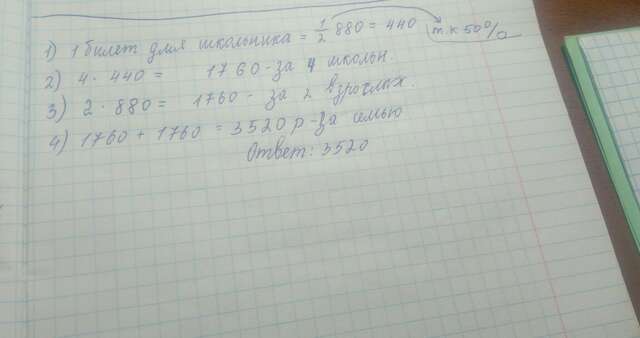 1) 1 билет для школьника = 1/2 880 = 440 т.к 50%
2) 4 · 440 = 1760 - за 4 школьн.
3) 2 · 880 = 1760 - за 2 взрослых.
4) 1760 + 1760 = 3520 р - за семью
Ответ: 3520